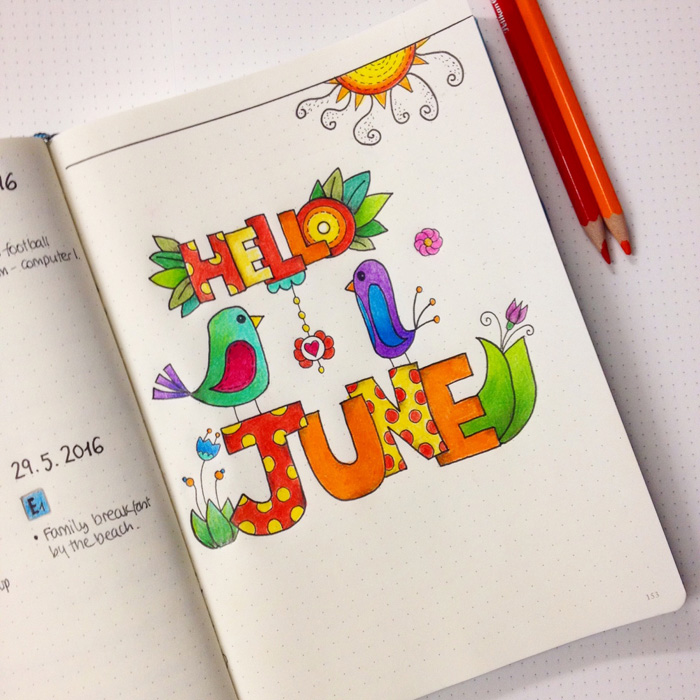 16
-football
m - computer 1.
29.5.2016
E1
• Family breakfast
by the beach.
up
HELLO
JUNE
153